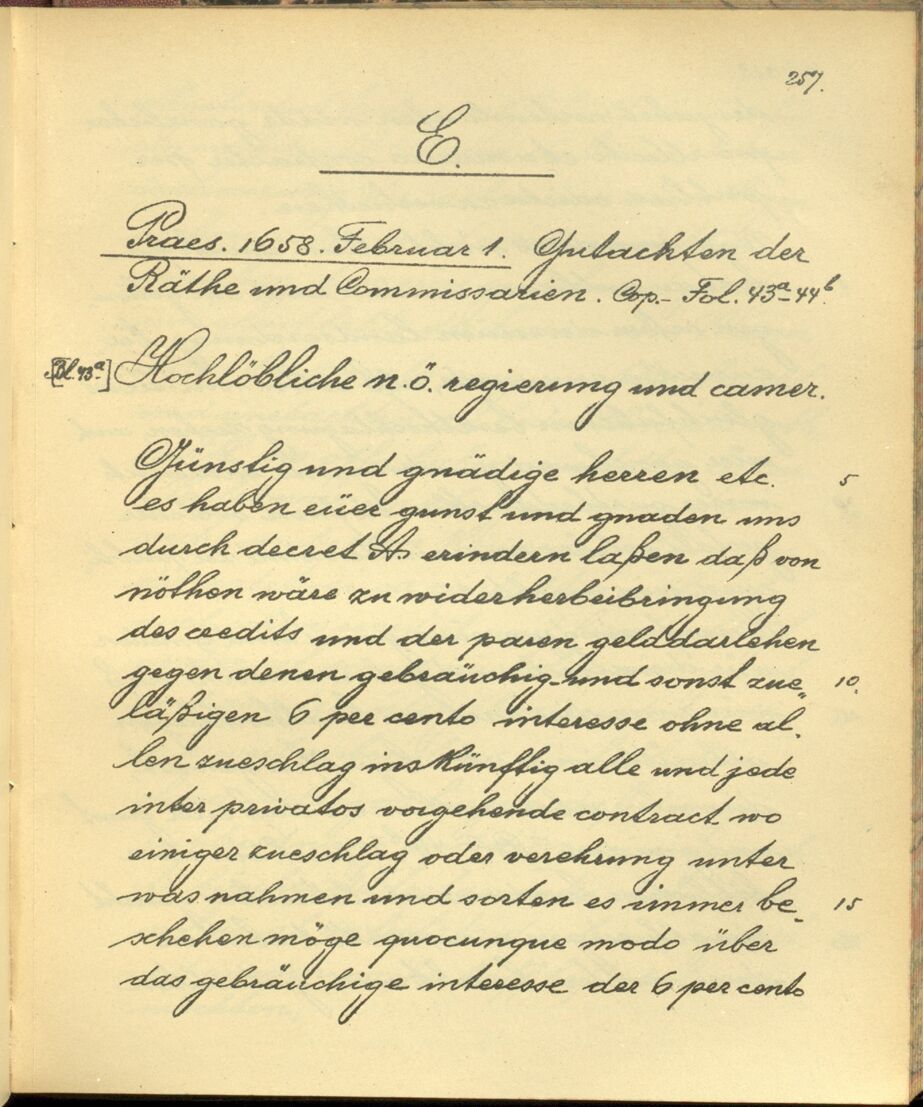 257.
E.
Praes. 1658. Februar 1. Gutachten der
Räthe und Commissarien. Cop.- Fol. 43a-44b.
[Bl. 43a] Hochlöbliche n.ö. regierung und camer.
Günstig und gnädige herren etc. 5
es haben eüer gunst und gnaden uns
durch decret A. erindern laßen daß von
nöthen wäre zu widerherbeibringung
des credits und der paren gelddarlehen
gegen denen gebräuchig- und sonst zue„ 10.
läßigen 6 per cento interesse ohne al„
len zueschlag ins künftig alle und jede
inter privatos vorgehende contract wo
einiger zueschlag oder verehrung unter
was nahmen und sorten es immer be„ 15
schehen möge quocunque modo über
das gebräuchige interesse der 6 per cento